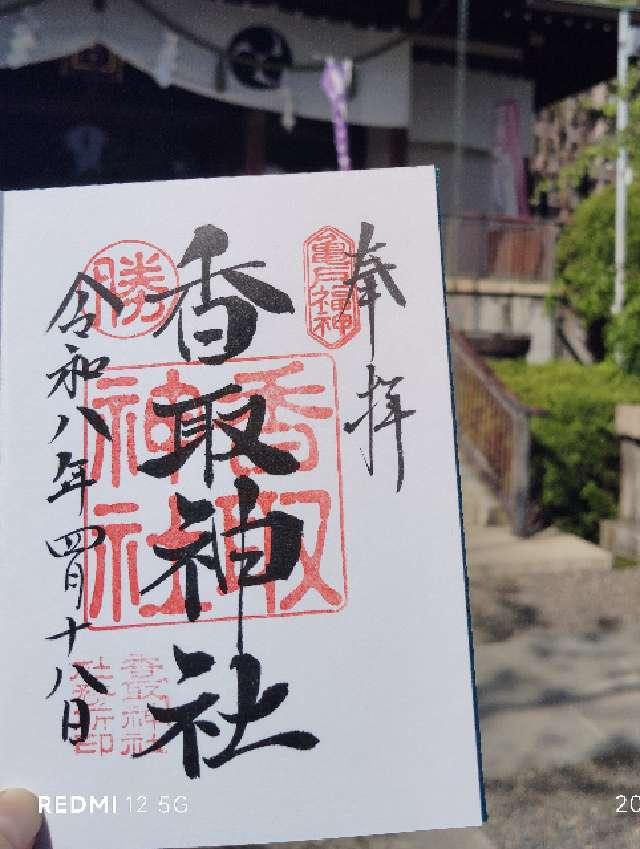 奉拝
亀戸福神
香取神社
香取神社
勝
令和八年四月十八日
香取神社
REDMI 12 5G
20